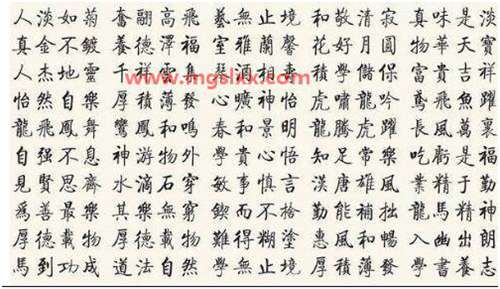 人淡如菊 奮翮高飛 藝無止境 和敬清寂 真味是淡
真金不鍍 養德澤福 室雅蘭馨 花好月圓 物華天寶
人杰地靈 千祥雲集 積學儲保 富貴吉祥
www.mgslxx.com
怡然自樂 厚積薄發 心曠神怡 虎嘯龍吟 鳶飛魚躍
龍飛鳳舞 鸞鳳和鳴 春和景明 龍騰虎躍 長風萬裏
自强不息 神游物外 學貴心悟 知足常樂 吃虧是福
見賢思齊 水滴石穿 敏事慎言 漢唐雄風 業精于勤
爲善最樂 其樂無窮 鍥而不捨 勤能補拙 龍馬精神
厚德載物 厚德載物 難得糊塗 惠風和暢 入幽出朗
馬到功成 道法自然 學無止境 厚積薄發 學書養志